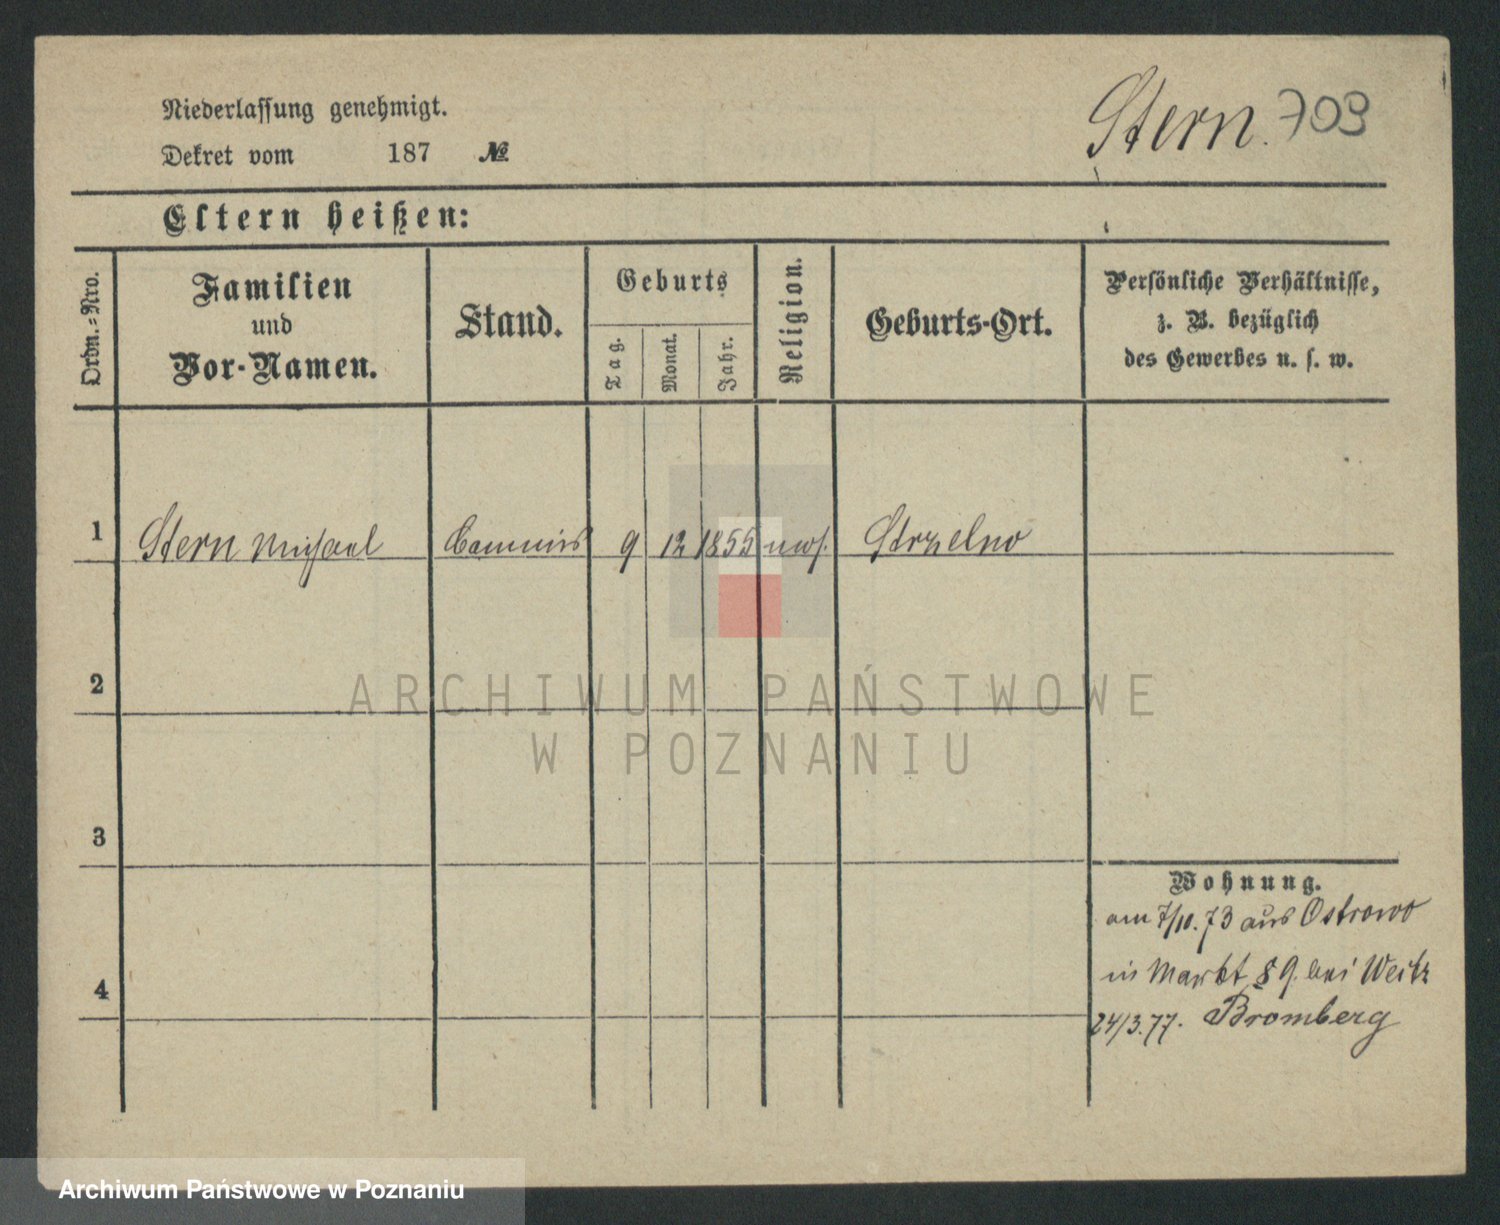 Niederlassung genehmigt.
Stern. 709
Dekret vom 187 №
Eltern heißen:
Ordn.-Nro.
Familien
und
Vor-Namen.
Stand.
Geburts
Tag.
Monat.
Jahr.
Religion.
Geburts-Ort.
Persönliche Verhältnisse,
z. B. bezüglich
des Gewerbes u. s. w.
1 Stern Michael Commis 9 12 1855 mos. Strzelno
2
3
4
Wohnung.
am 7/10. 73 aus Ostrowo
in Markt 89. bei Weitz
24/3. 77. Bromberg
ARCHIWUM PAŃSTWOWE
W POZNANIU
Archiwum Państwowe w Poznaniu